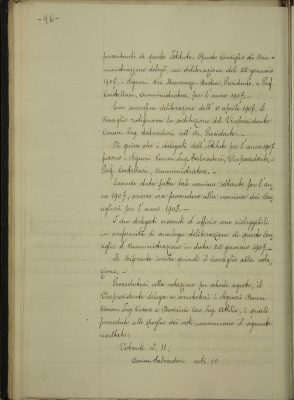 -96-
presentanti di questo Istituto. Questo Consiglio di Am-
ministrazione delegò, con deliberazione del 22 gennaio
1907, i Signori On. Presidente, e Prof.
Castellani, Amministratore, per l'anno 1907.-
Con successiva deliberazione dell'11 aprile 1907, il
Consiglio ratificava la sostituzione del Vicepresidente
Comm. Ing. Salvadori all'On. Presidente.-
Di guisa che i delegati dell'Istituto per l'anno 1907
furono i Signori Comm. Ing. Salvadori, Vicepresidente, e
Prof. Castellani, Amministratore.-
Essendo stata fatta tale nomina soltanto per l'an-
no 1907, occorre ora procedere alla nomina dei Con-
siglieri per l'anno 1908.-
I due delegati escenti d'ufficio sono rieleggibili
in conformità di analoga deliberazione di questo Con-
siglio d'Amministrazione in data 22 gennaio 1907.-
Si invita quindi il Consiglio alla vota-
zione.-
Procedutosi alla votazione per schede segrete, il
Vicepresidente delega a scrutatori i Signori
Comm. Ing. Cesare e Cav. Ing. Attilio, i quali
proceduto allo spoglio dei voti, comunicano il seguente
risultato:
Votanti N. 11;
Comm. Salvadori voti 10